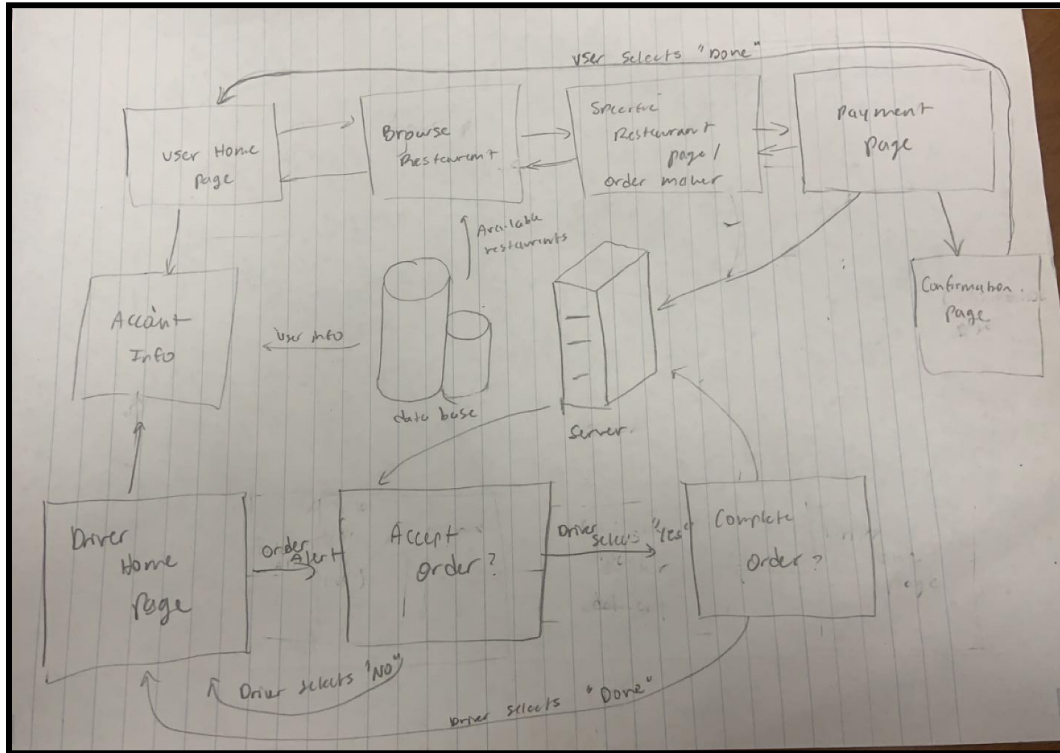 User selects "Done"
User Home
Page
Browse
Restaurant
Specific
Restaurant
page/
order maker
Payment
Page
Available
restaurants
Confirmation
Page
Account
Info
User info
data base
Server.
Driver
Home
Page
Order
Alert
Accept
Order?
Driver
Selects "Yes"
Complete
Order?
Driver selects "NO"
Driver selects "Done"